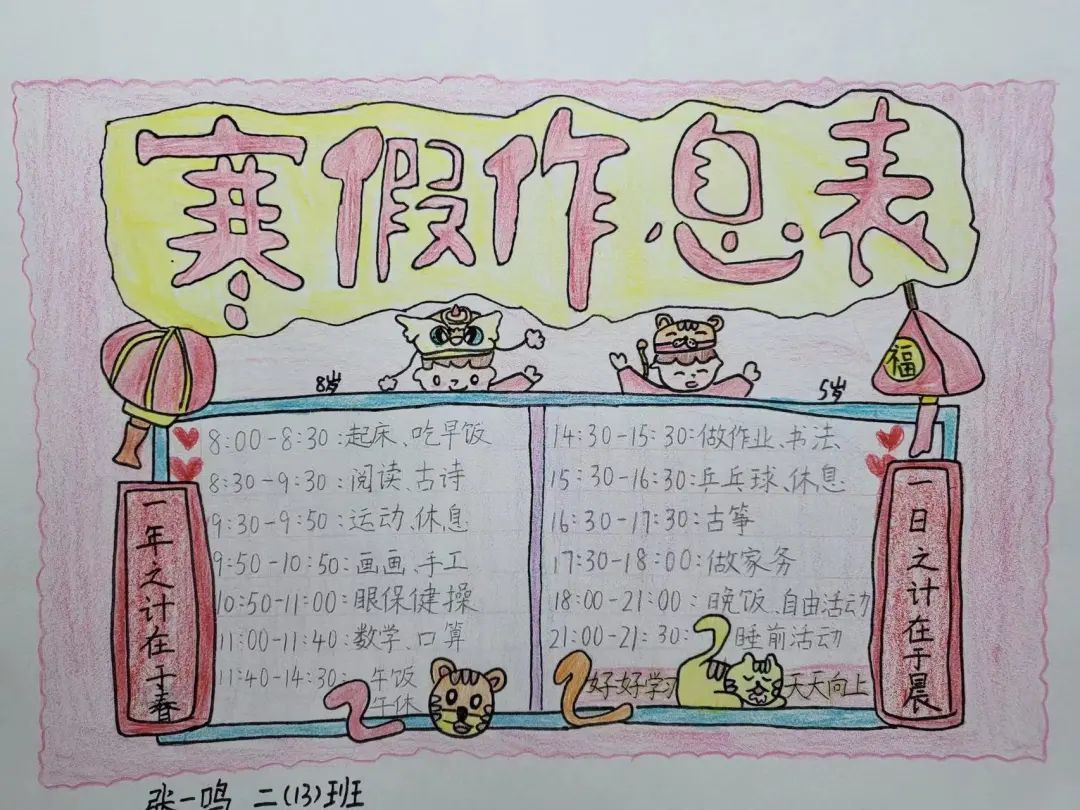 寒假作息表
8岁
5岁
福
一年之计在于春
8:00-8:30:起床、吃早饭
8:30-9:30:阅读、古诗
9:30-9:50:运动、休息
9:50-10:50:画画、手工
10:50-11:00:眼保健操
11:00-11:40:数学、口算
11:40-14:30:午饭
午休
14:30-15:30:做作业、书法
15:30-16:30:乒乓球、休息
16:30-17:30:古筝
17:30-18:00:做家务
18:00-21:00:晚饭、自由活动
21:00-21:30:睡前活动
好好学习 天天向上
一日之计在于晨
张一鸣 二(13)班